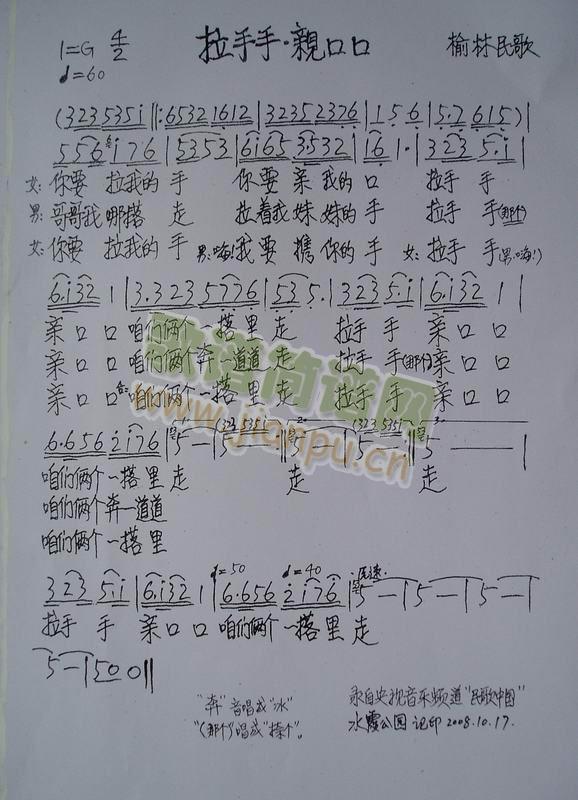 拉手手·親口口
榆林民歌
1=G 4/2
♩=60
(323 535i ‖: 65321612 | 32352376 | 1 5 6 | 5.7 615) |
556 i76 | 5353 | 6i65 3532 | 16 1· | 323 5.i |
女: 你要 拉我的 手 你要 亲 我的 口 拉手 手
男: 哥哥我 哪搭 走 拉着我 妹妹的 手 拉手 手(那个)
女: 你要 拉我的 手 男:嗨! 我要 携你的 手 女: 拉手 手(男:嗨!)
6.i32 1 | 3.323 5776 | 53 5. | 323 5.i | 6.i32 1 |
亲口 口 咱们俩个 一搭里 走 拉手 手 亲口 口
亲口 口 咱们俩个奔 一道道 走 拉手 手(那个) 亲口 口
亲口 口 合: 咱们俩个 一搭里 走 拉手 手 亲口 口
6.656 2i76 | 5 — | 5 — | 5 — | 5 — | 5 — |
咱们俩个 一搭里 走 走 走
咱们俩个奔一道道
咱们俩个 一搭里
♩=50 ♩=40
323 5.i | 6.i32 1 | 6.656 2i76 | 5 — | 5 — | 5 — |
拉手 手 亲口 口 咱们俩个 一搭里 走
5 — | 50 0 ‖
"奔"音唱成"水"
录自央视音乐频道"民歌中国"
水霞公园 记印 2008.10.17.
歌谱简谱网
www.jianpu.cn